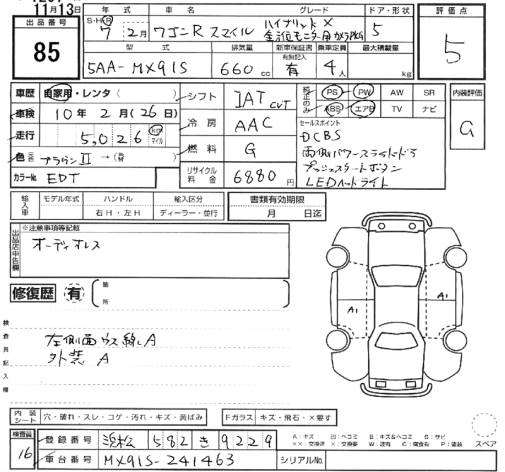 11月13日
出品番号
85
年式 車名 グレード ドア・形状 評価点
S・H・R 7年2月 ワゴンRスマイル ハイブリッドX 5
全方位モニター用カメラPKG
5
型式 排気量 新車保証書 乗車定員 最大積載量
有無記入
5AA-MX91S 660cc 有 4人 kg
車歴 自家用・レンタ( )
車検 10年2月(26日)
走行 5,026 km マイル
色 ブラウンⅡ →(替)
カラーNo. EDT
シフト IAT CVT
冷房 AAC
燃料 G
リサイクル料金 6880円
純正のみ PS PW AW SR
ABS エアB TV ナビ
内装評価
G
セールスポイント
DCBS
両側パワースライドドア
プッシュスタートボタン
LEDヘッドライト
輸入車 モデル年式 ハンドル 輸入区分 書類有効期限
右H・左H ディーラー・並行 月 日迄
出品店申告欄
※注意事項等記載
オーディオレス
修復歴 有 箇所
検査員記入欄
左側面ウス線A
外装A
A1 A1
内装シート 穴・破れ・スレ・コゲ・汚れ・キズ・黄ばみ
Fガラス キズ・飛石・×要す
スペア
検査員
16
登録番号 浜松 582 き 9229
A:キズ U:ヘコミ B:キズ&ヘコミ S:サビ
××:交換済 ×:交換要 W:波有 C:腐食有 P:塗装
車台番号 MX91S-241463 シリアルNo.